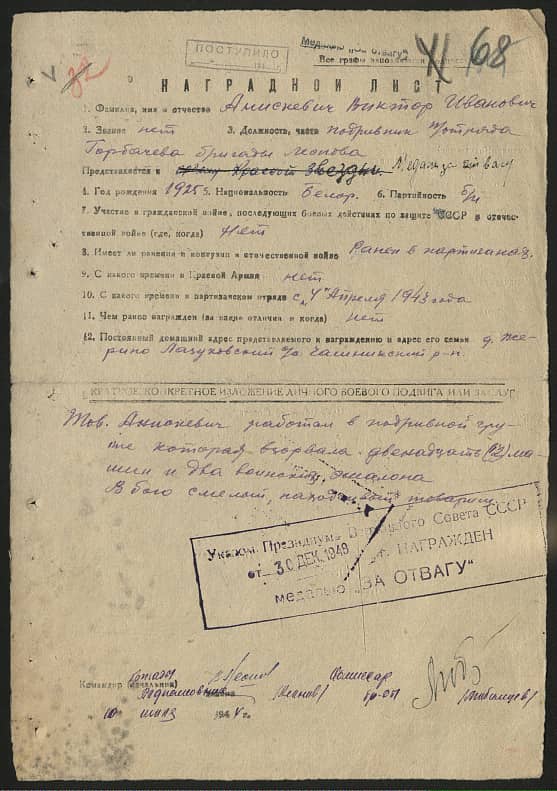 ПОСТУПИЛО
Медалью „За отвагу“
Все графы заполняются
68
НАГРАДНОЙ ЛИСТ
1. Фамилия, имя и отчество Анискевич Виктор Иванович
2. Звание нет 3. Должность, часть подрывник отряда
Горбачева бригады Леонова
Представляется к ордену Красной звезды. Медаль за отвагу
4. Год рождения 1925 5. Национальность Белор. 6. Партийность б/п
7. Участие в гражданской войне, последующих боевых действиях по защите СССР и отечес-
твенной войне (где, когда) Нет
8. Имеет ли ранения и контузии в отечественной войне Ранен в партизанах.
9. С какого времени в Красной Армии нет
10. С какого времени в партизанском отряде с „4“ Апреля 1943 года
11. Чем ранее награжден (за какие отличия и когда) нет
12. Постоянный домашний адрес представляемого к награждению и адрес его семьи д.
Чашникский р-н.
КРАТКОЕ, КОНКРЕТНОЕ ИЗЛОЖЕНИЕ ЛИЧНОГО БОЕВОГО ПОДВИГА ИЛИ ЗАСЛУГ
Тов. Анискевич работал в подрывной гру-
пе которая взорвала двенадцать (12) ма-
шин и два воинских эшалона
В бою смелый, находчивый товарищ.
Указом Президиума Верховного Совета СССР
от 30 ДЕК. 1949 г. НАГРАЖДЕН
медалью „ЗА ОТВАГУ“
Командир (начальник) Комиссар
Леонов
10 июля 1944 г.